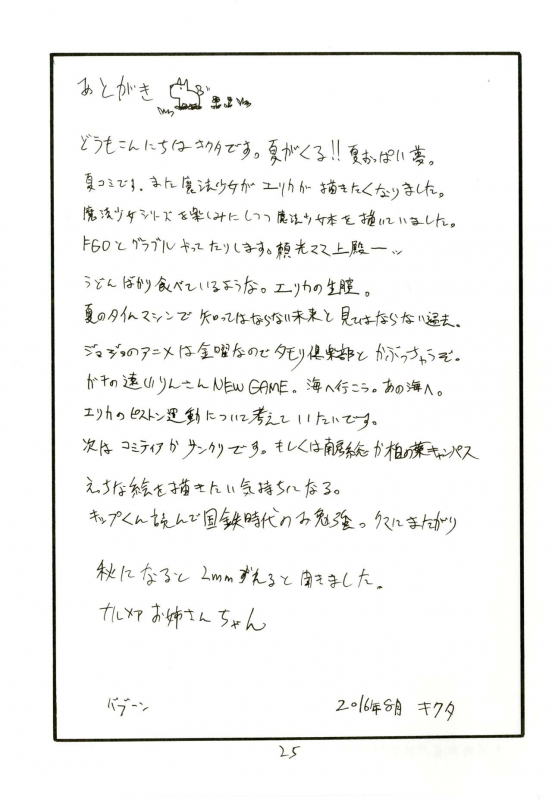 あとがき
どうもこんにちはキクタです。夏がくる!! 夏おっぱい夢。
夏コミです。また魔法少女が エリカが 描きたくなりました。
魔法少女シリーズを楽しみにしつつ 魔法少女本を描いていました。
FGOとグラブル やってたりします。頼光ママ上殿ー
うどんばかり食べているような。エリカの生膣。
夏のタイムマシンで 知ってはならない未来と見てはならない過去。
ジョジョのアニメは金曜なのでタモリ倶楽部とかぶっちゃうぞ。
ガチの遠山りんさんNEW GAME。海へ行こう。あの海へ。
エリカのピストン運動について考えていたいです。
次は コミティアか サンクリです。もしくは南房総か柏の葉キャンパス
えっちな絵を描きたい気持ちになる。
キップくん読んで国鉄時代のお勉強っ クマにまたがり
秋になると 2mm ずれると聞きました。
ナルメアお姉さんちゃん
バブーン
2016年8月 キクタ
25